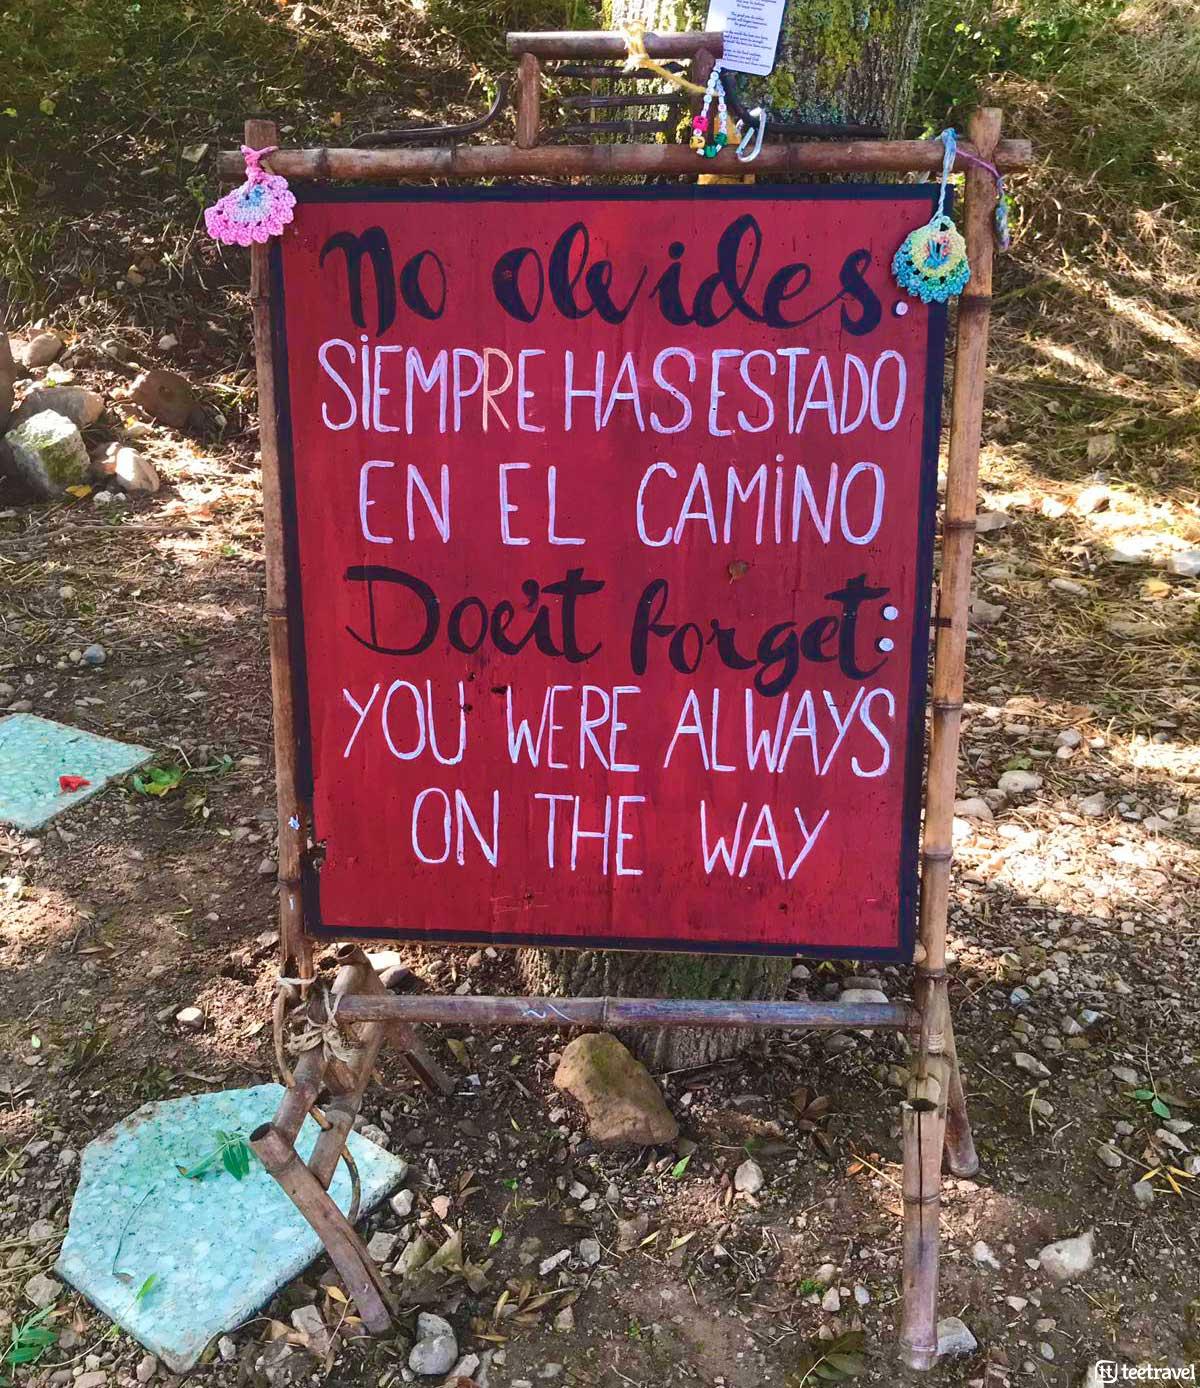 No olvides:
SIEMPRE HAS ESTADO
EN EL CAMINO
Don't forget:
YOU WERE ALWAYS
ON THE WAY
tt teetravel